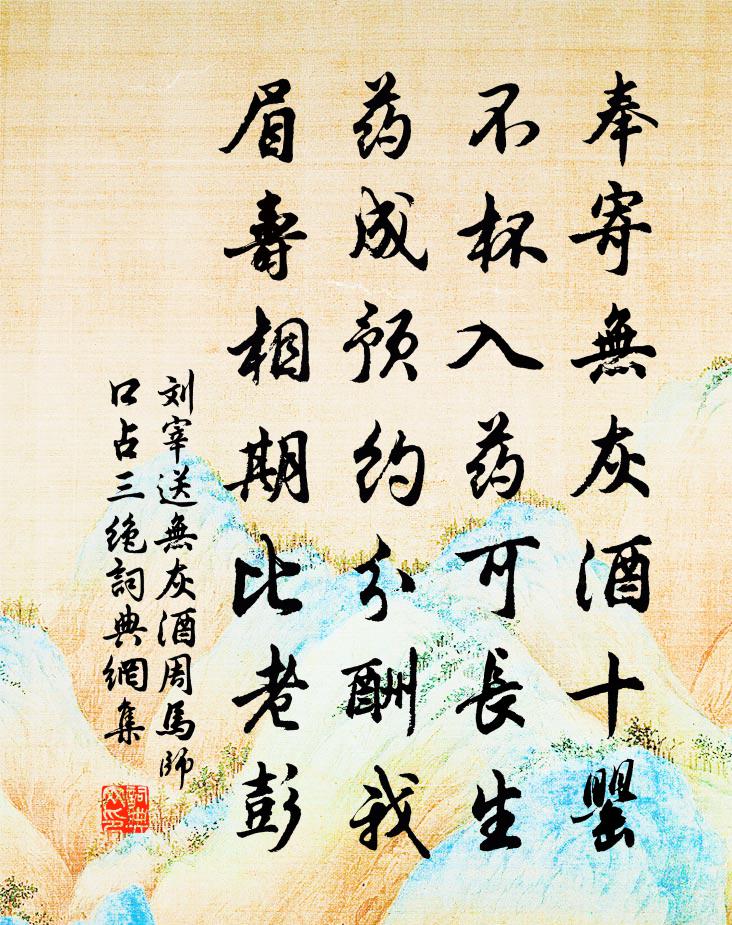 奉寄無灰酒十罌
不杯入药可長生
药成预约分酬我
眉壽相期比老彭
刘宰送無灰酒周馬師
口占三绝詞典網集